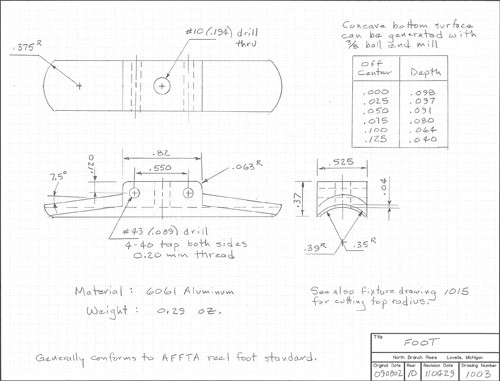 #10 (.194) drill
thru
.375R
Concave bottom surface
can be generated with
3/8 ball end mill
Off
Center
Depth
.000 .098
.025 .097
.050 .091
.075 .080
.100 .064
.125 .040
.82
.550
.120
7.5°
.063R
.525
.37
.04
.39R
.35R
#43 (.089) drill
4-40 tap both sides
0.20 min thread
Material: 6061 Aluminum
Weight: 0.29 oz.
See also fixture drawing 1015
for cutting top radius.
Generally conforms to AFFTA reel foot standard.
Title
FOOT
North Branch Reels Lovells, Michigan
Original Date
Reel
Revision Date
Drawing Number
090802
10
110429
1003